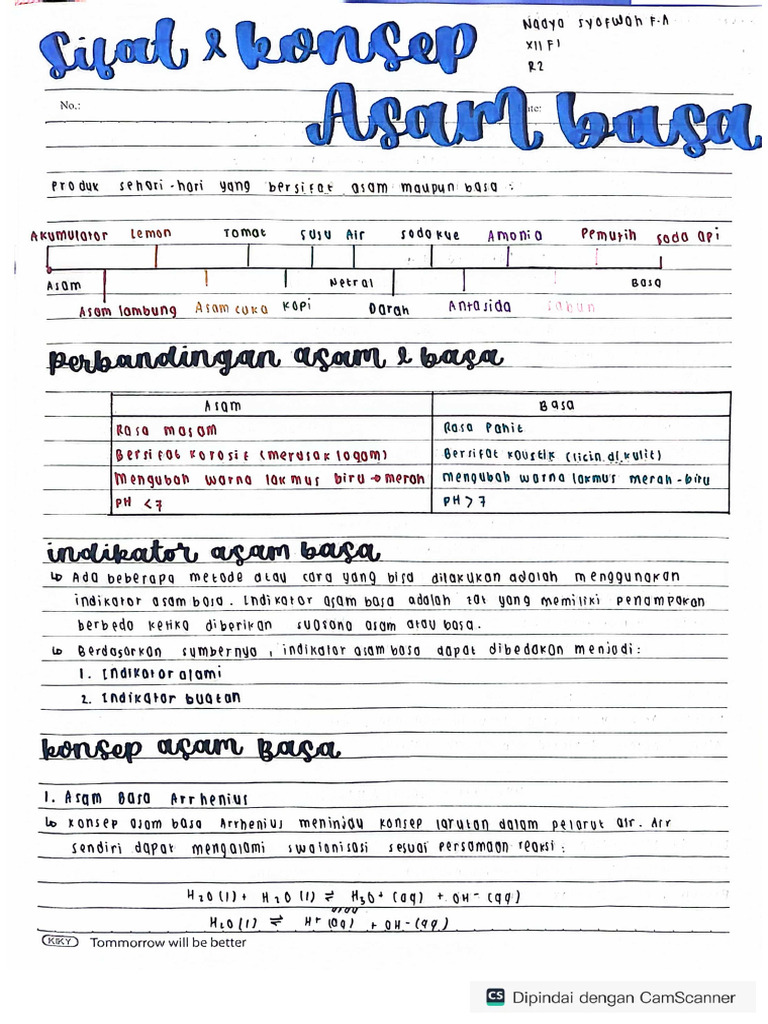 Sifat & konsep
Nadya Syafwah F.A
XII F1
R2
No.:
Asam basa
Produk sehari-hari yang bersifat asam maupun basa :
Akumulator Lemon Tomat Susu Air Soda kue Amonia Pemutih Soda api
Asam Netral Basa
Asam lambung Asam cuka Kopi Darah Antasida Sabun
Perbandingan asam & basa
Asam Basa
Rasa masam Rasa Pahit
Bersifat korosif (merusak logam) Bersifat kaustik (licin di kulit)
Mengubah warna lakmus biru → merah mengubah warna lakmus merah - biru
PH < 7 PH > 7
indikator asam basa
↳ Ada beberapa metode atau cara yang bisa dilakukan adalah menggunakan
indikator asam basa. Indikator asam basa adalah zat yang memiliki penampakan
berbeda ketika diberikan suasana asam atau basa.
↳ Berdasarkan sumbernya, indikator asam basa dapat dibedakan menjadi:
1. Indikator alami
2. Indikator buatan
konsep asam Basa
1. Asam Basa Arrhenius
↳ Konsep asam basa Arrhenius meninjau konsep larutan dalam pelarut air. Air
sendiri dapat mengalami swaionisasi sesuai persamaan reaksi:
H2O (l) + H2O (l) ⇌ H3O+ (aq) + OH- (aq)
atau
H2O (l) ⇌ H+ (aq) + OH- (aq)
KIKY Tommorrow will be better
CS Dipindai dengan CamScanner